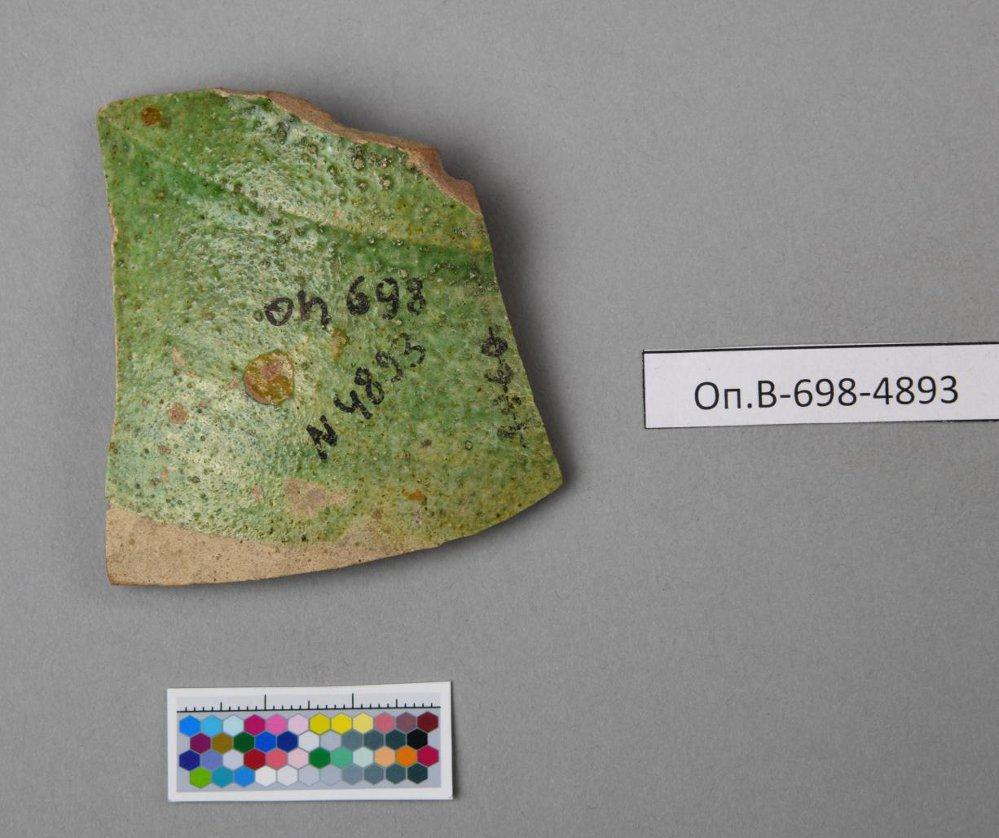 оп 698
N 4893
Оп.В-698-4893